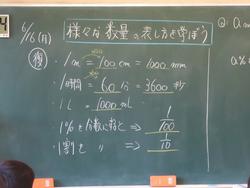 様々な数量の表し方を学ぼう
6/6(月)
復
・1m = 100cm = 1000mm
・1時間 = 60分 = 3600秒
・1L = 1000mL
・1%を分数に直すと ⇒ 1/100
・1割を 〃 ⇒ 1/10
a%